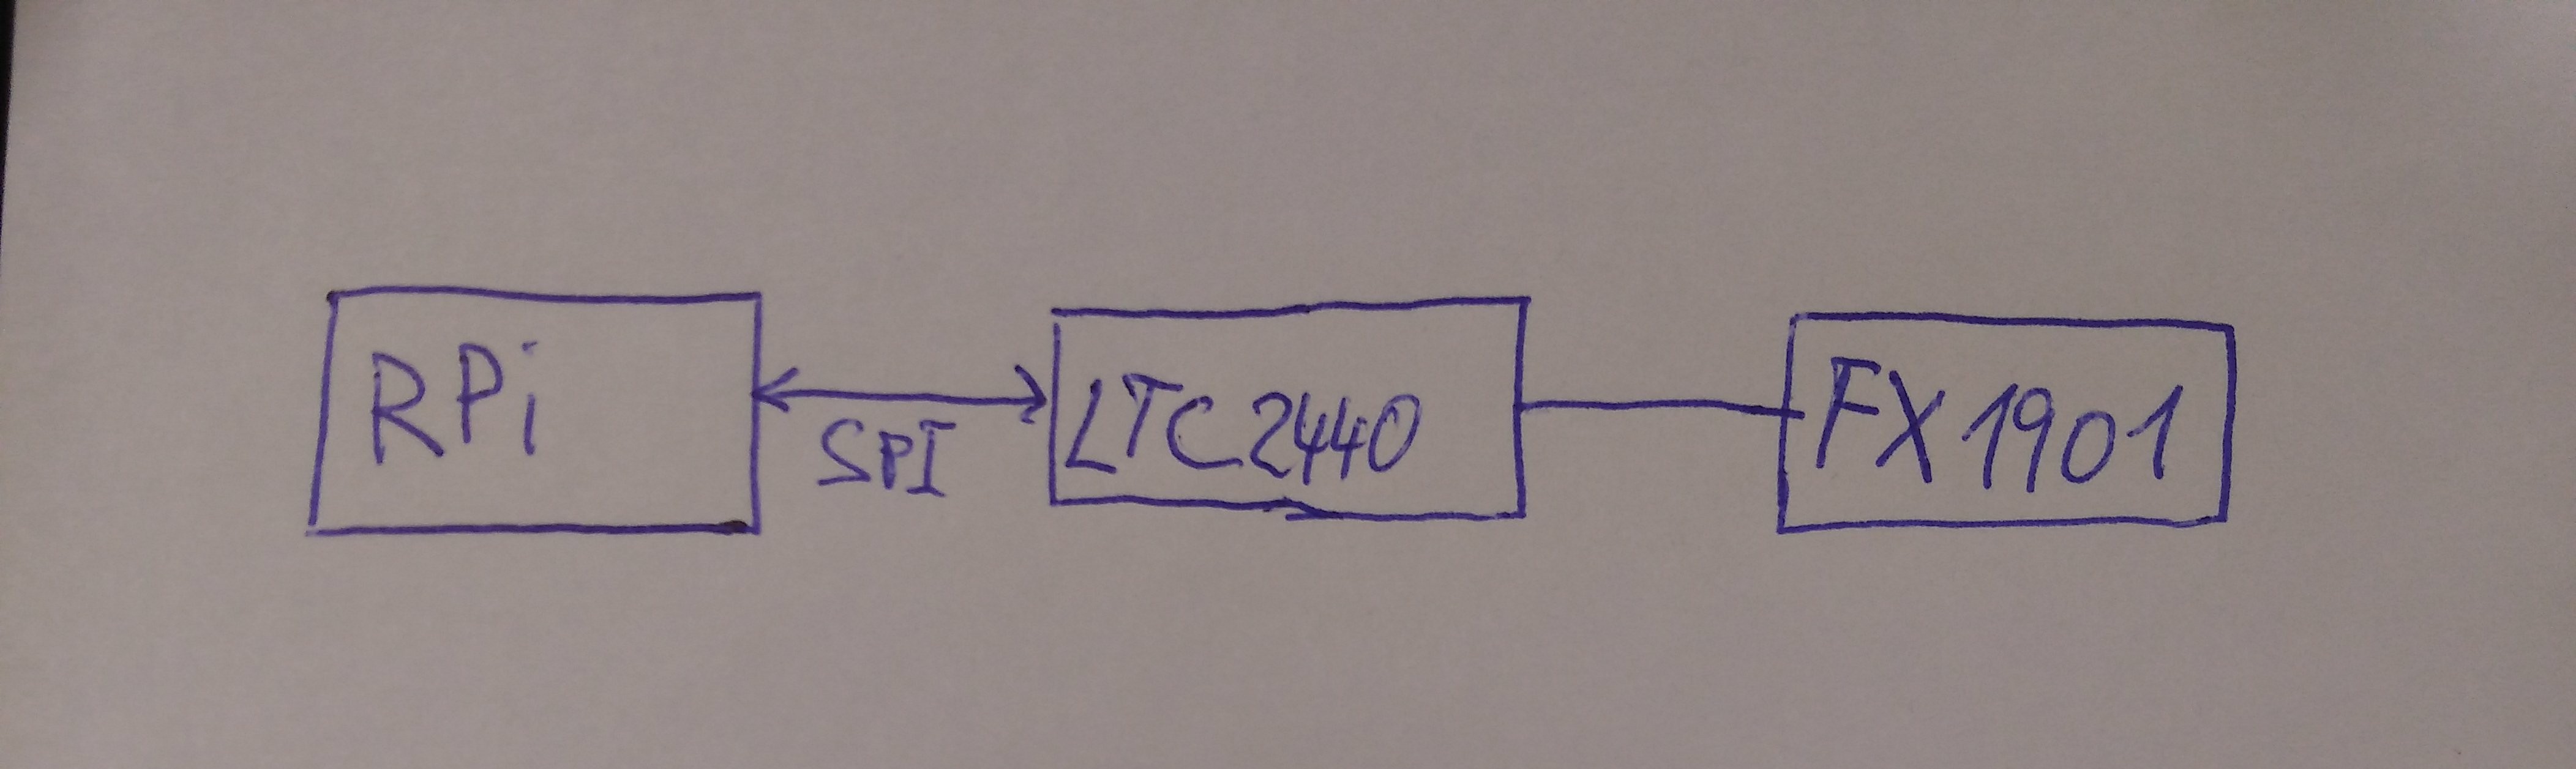 RPi
SPI
LTC2440
FX1901